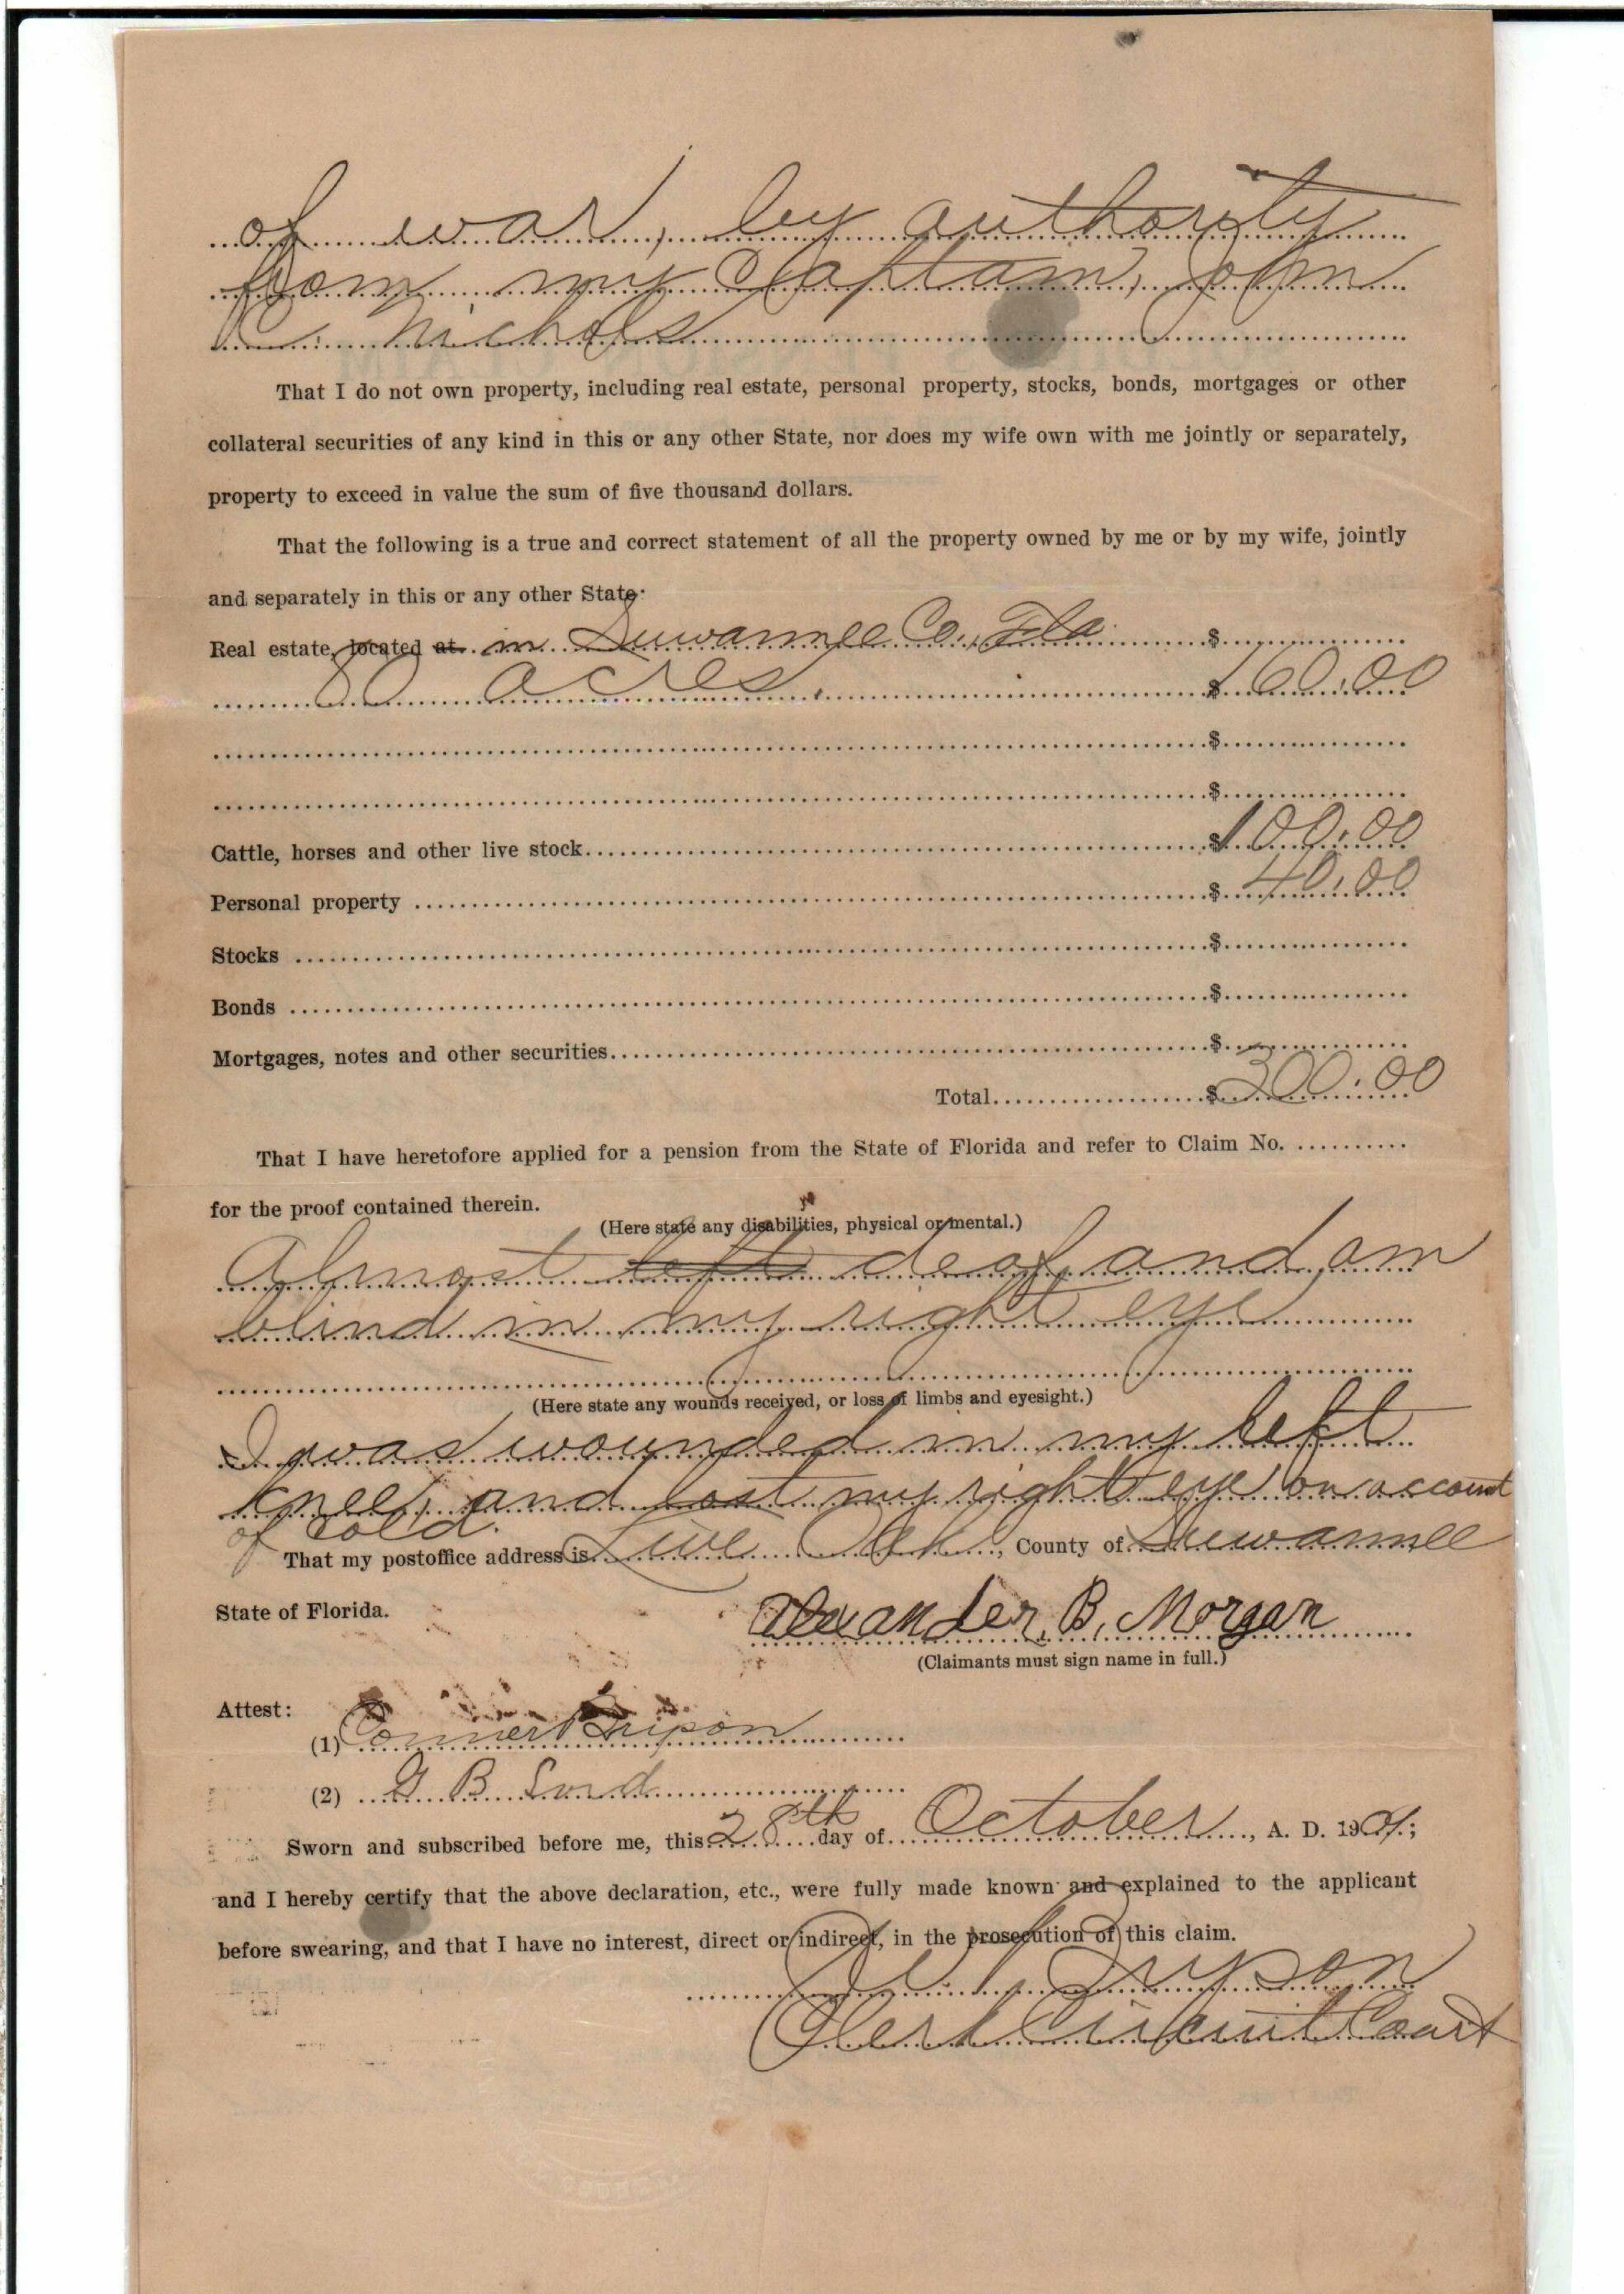 of war, by authority
from my Captain, John
C. Nichols
That I do not own property, including real estate, personal property, stocks, bonds, mortgages or other
collateral securities of any kind in this or any other State, nor does my wife own with me jointly or separately,
property to exceed in value the sum of five thousand dollars.
That the following is a true and correct statement of all the property owned by me or by my wife, jointly
and separately in this or any other State:
Real estate, located at in Suwannee Co., Fla $
80 acres. $160.00
$
$
Cattle, horses and other live stock $100.00
Personal property $40.00
Stocks $
Bonds $
Mortgages, notes and other securities $
Total $300.00
That I have heretofore applied for a pension from the State of Florida and refer to Claim No.
for the proof contained therein.
(Here state any disabilities, physical or mental.)
Almost left deaf, and am
blind in my right eye
(Here state any wounds received, or loss of limbs and eyesight.)
I was wounded in my left
knee, and lost my right eye on account
of cold.
That my postoffice address is Live Oak, County of Suwannee
State of Florida.
Alexander. B. Morgan
(Claimants must sign name in full.)
Attest:
(1)
(2) G B
Sworn and subscribed before me, this 28th day of October, A. D. 190;
and I hereby certify that the above declaration, etc., were fully made known and explained to the applicant
before swearing, and that I have no interest, direct or indirect, in the prosecution of this claim.
Clerk Circuit Court